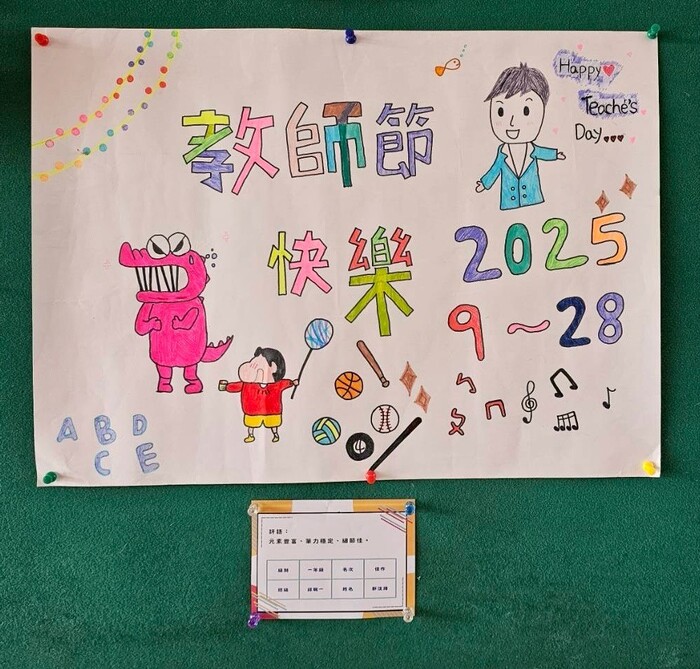 Happy
Teache's
Day...
教師節
快樂
2025
9~28
ㄅ
ㄆㄇ
A B D
C E
評語：
元素豐富、筆力穩定、細節佳。
級別 一年級 名次 佳作
班級 姓名